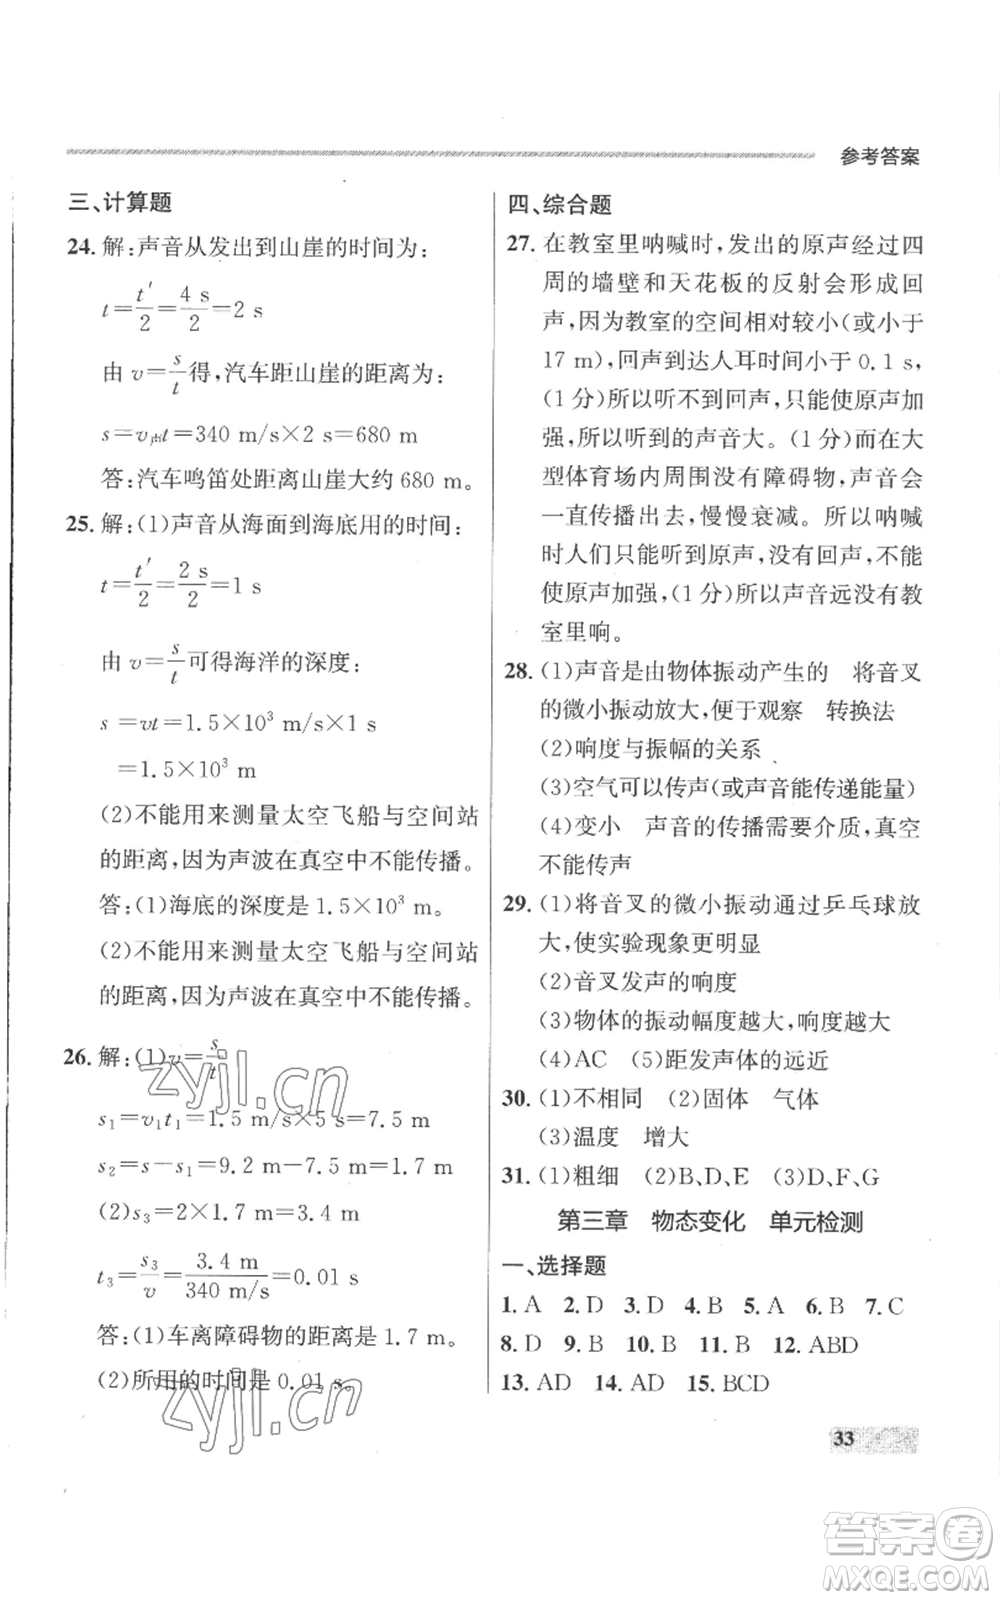 参考答案
三、计算题
24. 解:声音从发出到山崖的时间为:
t=t′/2=4 s/2=2 s
由 v=s/t得,汽车距山崖的距离为:
s=v声t=340 m/s×2 s=680 m
答:汽车鸣笛处距离山崖大约 680 m。
25. 解:(1)声音从海面到海底用的时间:
t=t′/2=2 s/2=1 s
由 v=s/t可得海洋的深度:
s=vt=1.5×10³ m/s×1 s
=1.5×10³ m
(2)不能用来测量太空飞船与空间站
的距离,因为声波在真空中不能传播。
答:(1)海底的深度是 1.5×10³ m。
(2)不能用来测量太空飞船与空间站
的距离,因为声波在真空中不能传播。
26. 解:(1)v=s/t
s₁=v₁t₁=1.5 m/s×5 s=7.5 m
s₂=s-s₁=9.2 m-7.5 m=1.7 m
(2)s₃=2×1.7 m=3.4 m
t₃=s₃/v=3.4 m/340 m/s=0.01 s
答:(1)车离障碍物的距离是 1.7 m。
(2)所用的时间是 0.01 s。
四、综合题
27. 在教室里呐喊时,发出的原声经过四
周的墙壁和天花板的反射会形成回
声,因为教室的空间相对较小(或小于
17 m),回声到达人耳时间小于 0.1 s,
(1 分)所以听不到回声,只能使原声加
强,所以听到的声音大。(1 分)而在大
型体育场内周围没有障碍物,声音会
一直传播出去,慢慢衰减。所以呐喊
时人们只能听到原声,没有回声,不能
使原声加强,(1 分)所以声音远没有教
室里响。
28. (1)声音是由物体振动产生的 将音叉
的微小振动放大,便于观察 转换法
(2)响度与振幅的关系
(3)空气可以传声(或声音能传递能量)
(4)变小 声音的传播需要介质,真空
不能传声
29. (1)将音叉的微小振动通过乒乓球放
大,使实验现象更明显
(2)音叉发声的响度
(3)物体的振动幅度越大,响度越大
(4)AC (5)距发声体的远近
30. (1)不相同 (2)固体 气体
(3)温度 增大
31. (1)粗细 (2)B,D,E (3)D,F,G
第三章 物态变化 单元检测
一、选择题
1. A 2. D 3. D 4. B 5. A 6. B 7. C
8. D 9. B 10. B 11. B 12. ABD
13. AD 14. AD 15. BCD
33
zyjl.cn
zyjl.cn
答案卷
MXQE.COM